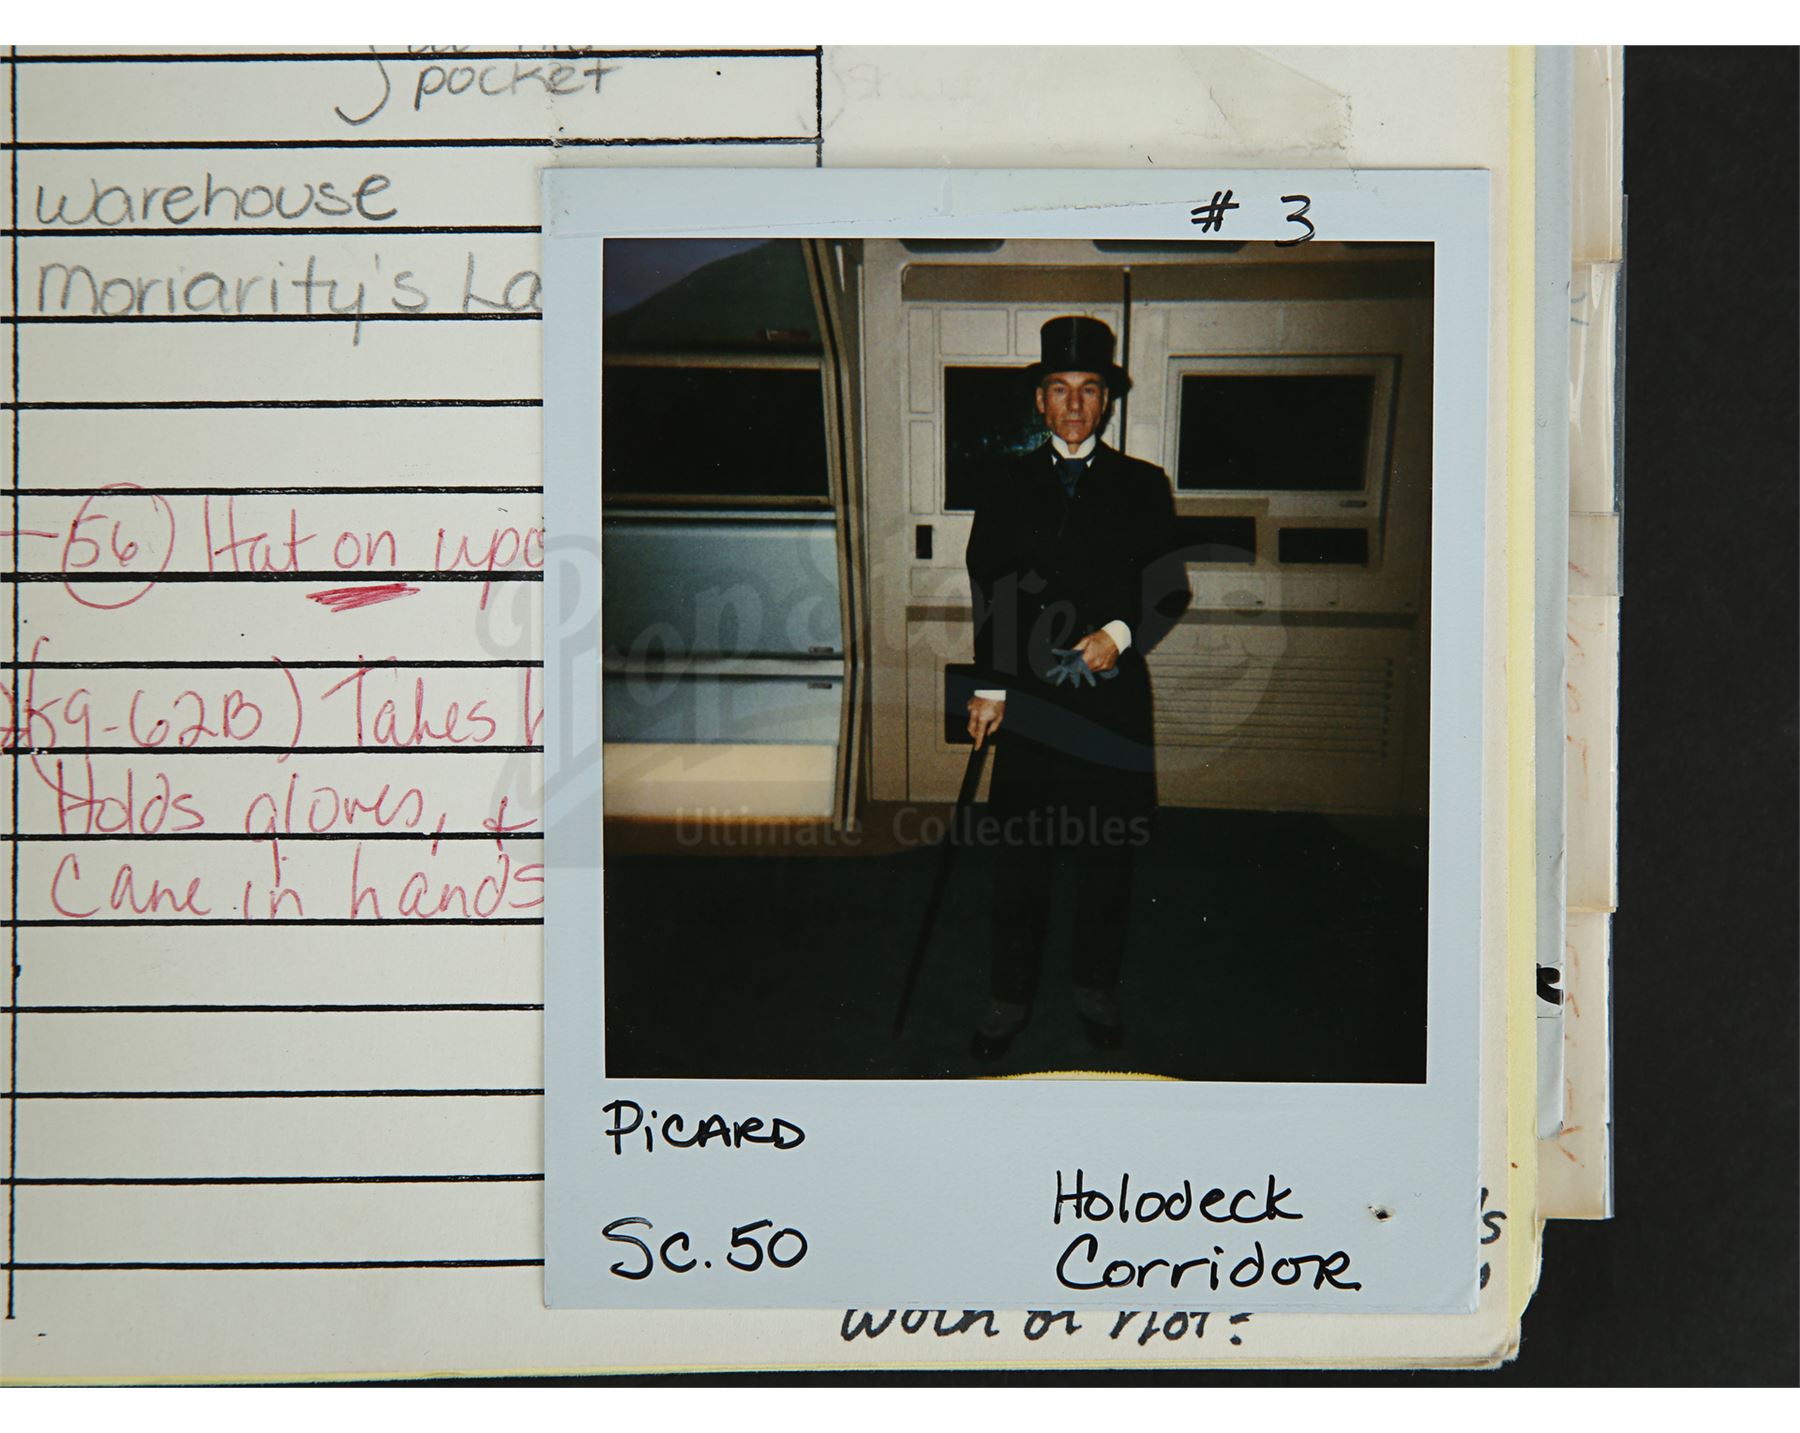 pocket
warehouse
Moriarity's La
# 3
-56) Hat on upo
59-62B) Takes h
Holds gloves, &
Cane in hands
PopStore
Ultimate Collectibles
PiCARD
Sc. 50
Holodeck
Corridor
's
worn or not?